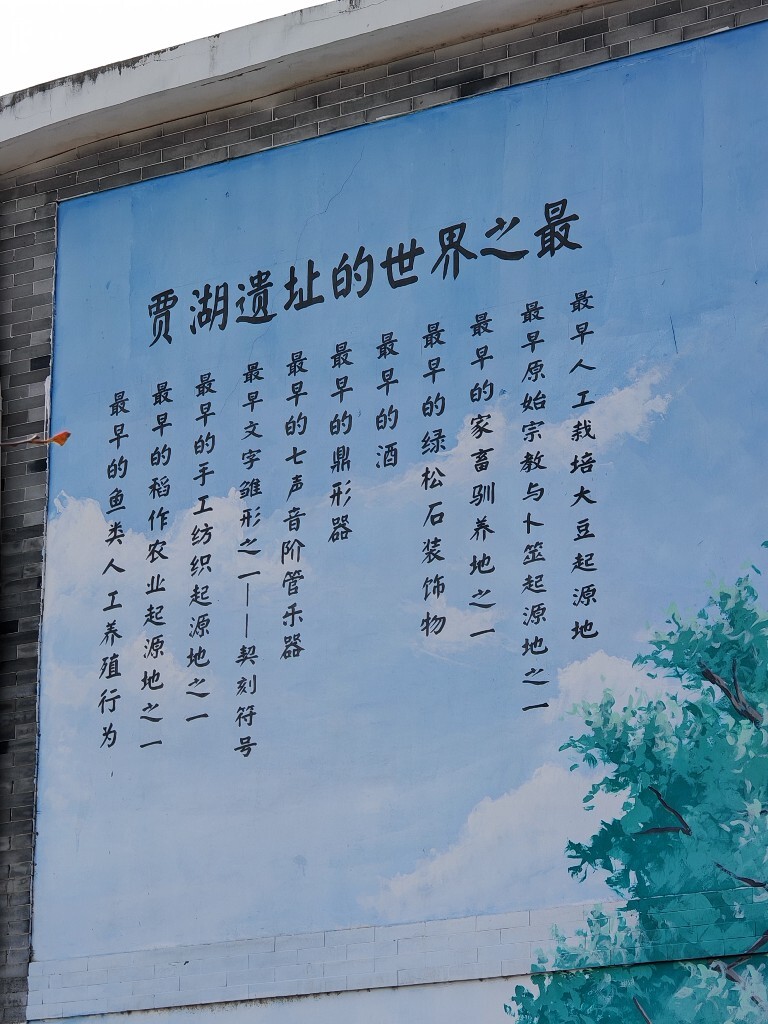 贾湖遗址的世界之最
最早人工栽培大豆起源地
最早原始宗教与卜筮起源地之一
最早的家畜驯养地之一
最早的绿松石装饰物
最早的酒
最早的鼎形器
最早的七声音阶管乐器
最早文字雏形之一——契刻符号
最早的手工纺织起源地之一
最早的稻作农业起源地之一
最早的鱼类人工养殖行为